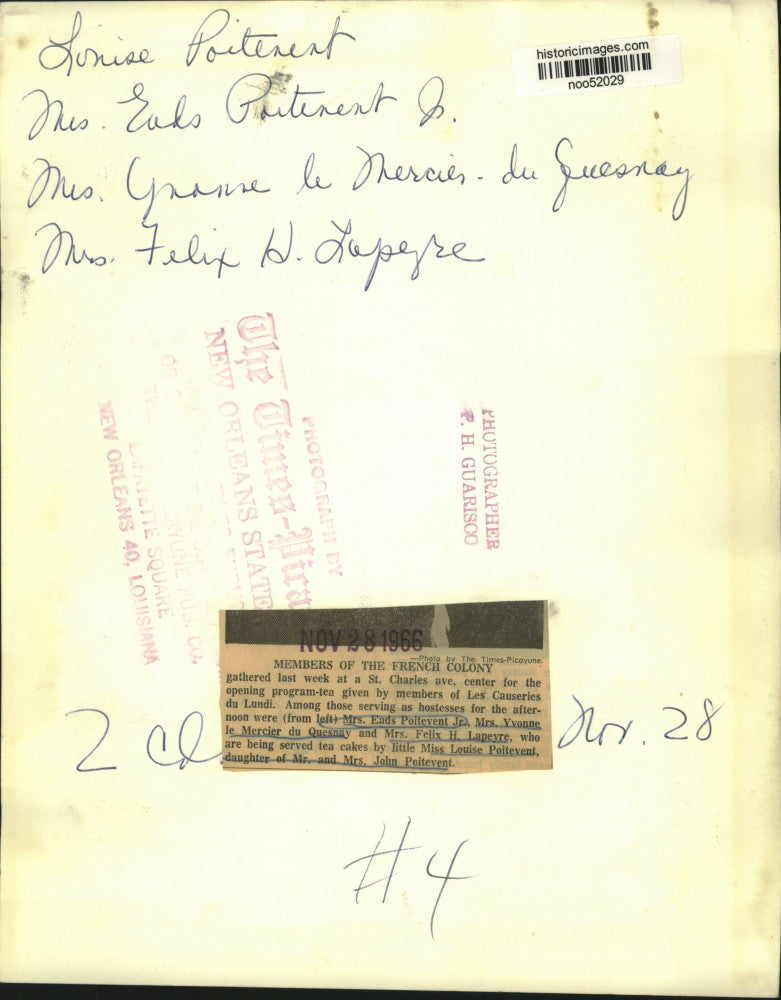 Louise Poitevent
Mrs. Eads Poitevent Jr.
Mrs. Yvonne le Mercier du Quesnay
Mrs. Felix H. Lapeyre
historicimages.com
noo52029
PHOTOGRAPH BY
The Times-Picayu
NEW ORLEANS STATE
LAFAYETTE SQUARE
NEW ORLEANS 40, LOUISIANA
PHOTOGRAPHER
P. H. GUARISCO
NOV 28 1966
—Photo by The Times-Picayune.
MEMBERS OF THE FRENCH COLONY
gathered last week at a St. Charles ave. center for the
opening program-tea given by members of Les Causeries
du Lundi. Among those serving as hostesses for the after-
noon were (from left) Mrs. Eads Poitevent Jr., Mrs. Yvonne
le Mercier du Quesnay and Mrs. Felix H. Lapeyre, who
are being served tea cakes by little Miss Louise Poitevent,
daughter of Mr. and Mrs. John Poitevent.
2 col
Nov. 28
#4